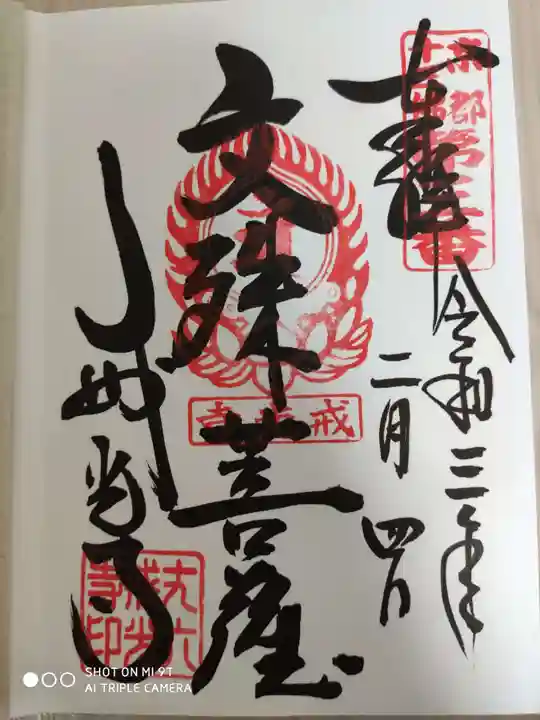 京都
十三佛
第三番
奉拝
令和三年
二月四日
文殊菩薩
戒光寺
戒光寺
丈六
戒光
寺印
SHOT ON MI 9T
AI TRIPLE CAMERA